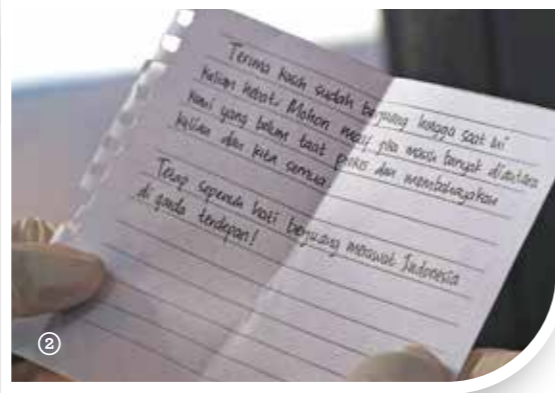 Terima kasih sudah berjuang hingga saat ini
kalian hebat. Mohon maaf jika masih banyak diantara
kami yang belum taat prokes dan membahayakan
kalian dan kita semua.
Tetap sepenuh hati berjuang merawat Indonesia
di garda terdepan!
2